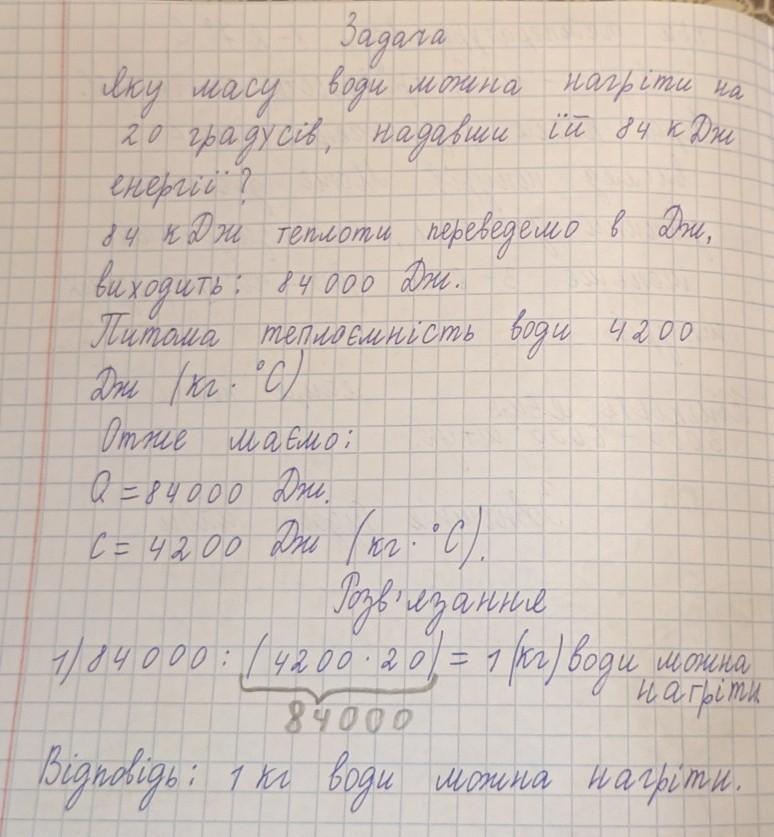 Задача
Яку масу води можна нагріти на
20 градусів, надавши їй 84 кДж
енергії?
84 кДж теплоти переведемо в Дж,
виходить: 84000 Дж.
Питома теплоємність води 4200
Дж (кг · °С)
Отже маємо:
Q = 84000 Дж.
С = 4200 Дж (кг · °С).
Розв'язання
1) 84000 : (4200 · 20) = 1 (кг) води можна
нагріти
84000
Відповідь: 1 кг води можна нагріти.